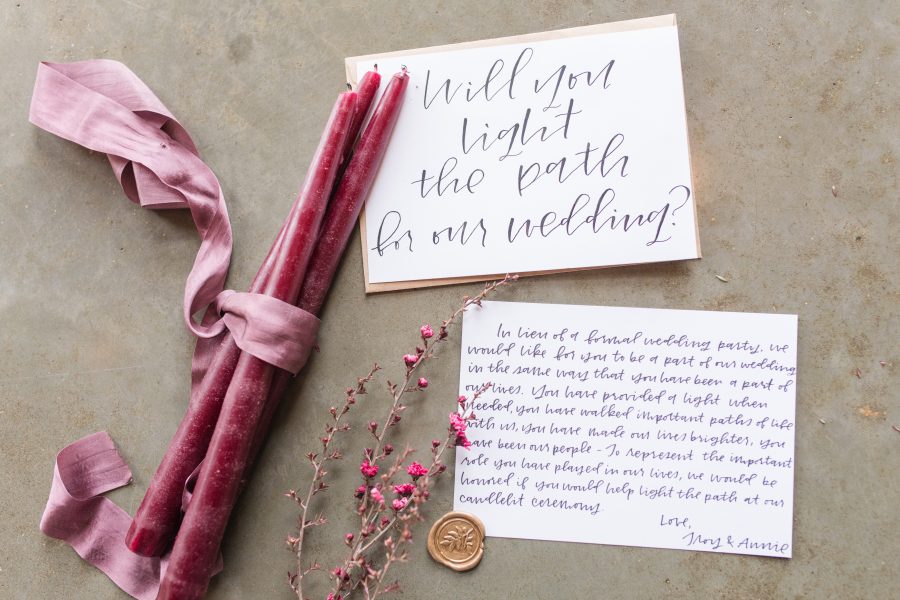 Will you
light
the path
for our wedding?
In lieu of a formal wedding party, we
would like for you to be a part of our wedding
in the same way that you have been a part of
our lives. You have provided a light when
needed, you have walked important paths of life
with us, you have made our lives brighter, you
have been our people - To represent the important
role you have played in our lives, we would be
honored if you would help light the path at our
candlelit ceremony.
Love,
Troy & Annie